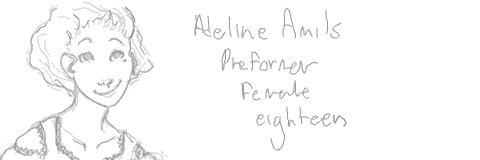 Adeline Amils
Preformer
Female
eighteen